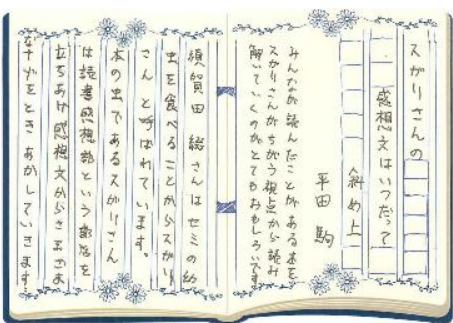 スガリさんの
感想文はいつだって
斜め上
平田 駒
みんなが読んだことがある本を
スガリさんがちがう視点から読み
解いていくのがとてもおもしろいです
須賀田 綴さんはセミの幼
虫を食べることからスガリ
さん と呼ばれています。
本の虫であるスガリさん
は読書感想部という部活を
立ちあげ 感想文からさまざま
なナゾをときあかしていきます。